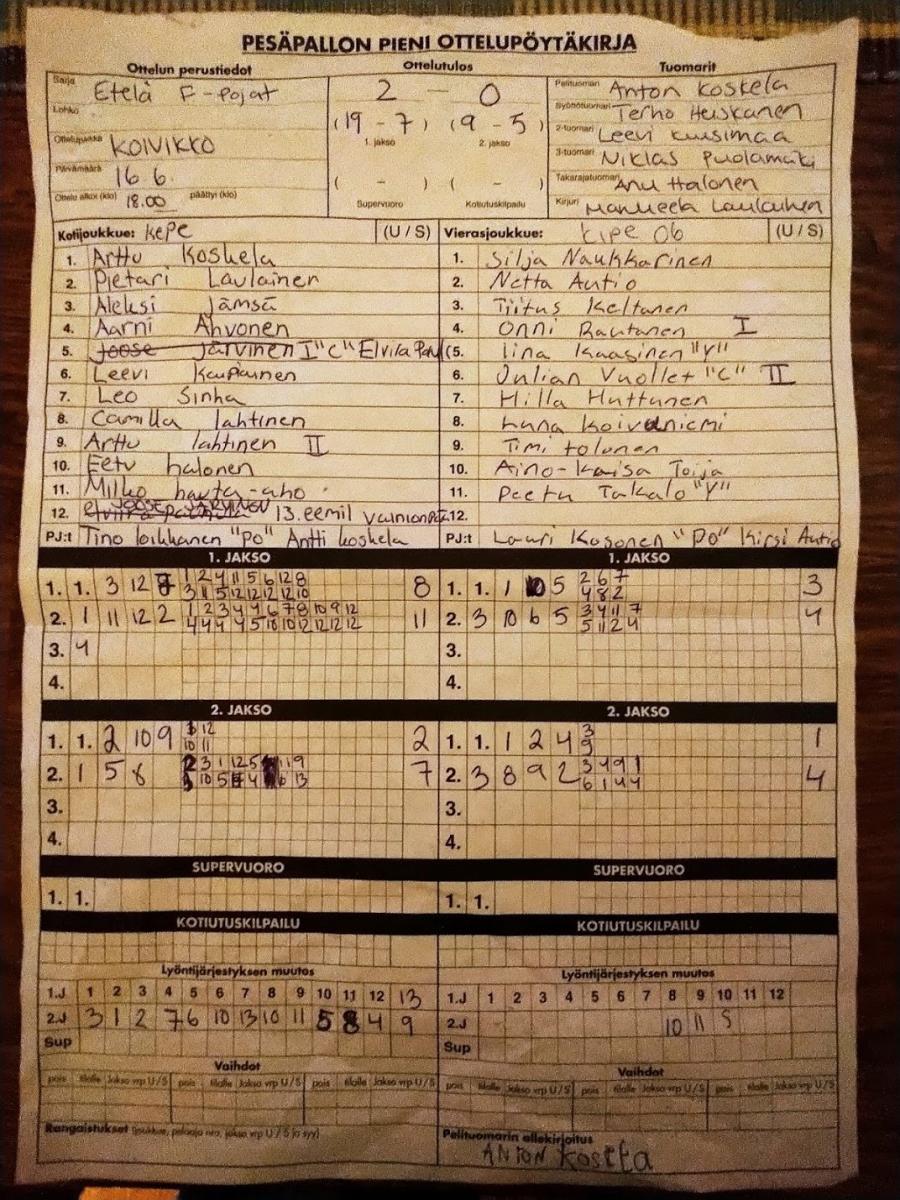 PESÄPALLON PIENI OTTELUPÖYTÄKIRJA
Ottelun perustiedot
Sarja Etelä F-pojat
Lohko
Ottelupaikka KOIVIKKO
Päivämäärä 16.6.
Ottelu alkoi (klo) 18.00 päättyi (klo)
Ottelutulos
2 - 0
(19 - 7) (9 - 5)
1. jakso 2. jakso
( - ) ( - )
Supervuoro Kotiutuskilpailu
Tuomarit
Pelituomari Anton Koskela
Syöttötuomari Terho Heiskanen
2-tuomari Leevi Kuusimaa
3-tuomari Niklas Puolamäki
Takarajatuomari Anu Halonen
Kirjuri Manueela Laulainen
Kotijoukkue: Kepe (U / S)
1. Arttu Koskela
2. Pietari Laulainen
3. Aleksi Jämsä
4. Aarni Ahvonen
5. Joose Järvinen I "C" Elvila
6. Leevi Kauppinen
7. Leo Sinha
8. Camilla lahtinen
9. Arttu lahtinen II
10. Eetu halonen
11. Milko hauta-aho
12. JOOSE JÄRVINEN 13. eemil
PJ:t Tino loikkanen "PO" Antti koskela
Vierasjoukkue: Kipe 06 (U / S)
1. Silja Naukkarinen
2. Netta Autio
3. Tiitus Keltanen
4. Onni Rautanen I
5. Iina Kaasinen "V"
6. Julian Vuollet "C" II
7. Hilla Huttunen
8. Luna Koivuniemi
9. Timi tolonen
10. Aino-Kaisa Toija
11. Peetu Takalo "V"
12.
PJ:t Lauri Kosonen "PO" Kirsi Autio
1. JAKSO
1. 1. 3 12 1 2 4 11 5 6 12 8 8
3 11 5 12 12 12 12 10
2. 1 11 12 2 1 2 3 4 4 6 7 8 10 9 12 11
4 4 4 4 5 10 10 12 12 12 12
3. 4
4.
1. JAKSO
1. 1. 1 10 5 2 6 7 3
4 8 2
2. 3 10 6 5 3 4 11 7 4
5 11 2 4
3.
4.
2. JAKSO
1. 1. 2 10 9 12 2
10 11
2. 1 5 8 2 3 1 12 5 11 9 7
10 5 4 6 13
3.
4.
2. JAKSO
1. 1. 1 2 4 3 1
9
2. 3 8 9 2 3 4 9 1 4
6 1 4 4
3.
4.
SUPERVUORO
1. 1.
SUPERVUORO
1. 1.
KOTIUTUSKILPAILU
KOTIUTUSKILPAILU
Lyöntijärjestyksen muutos
1.J 1 2 3 4 5 6 7 8 9 10 11 12 13
2.J 3 1 2 7 6 10 13 10 11 5 8 4 9
Sup
Lyöntijärjestyksen muutos
1.J 1 2 3 4 5 6 7 8 9 10 11 12
2.J 10 11 5
Sup
Vaihdot
pois tilalle Jakso vrp U/S pois tilalle Jakso vrp U/S pois tilalle Jakso vrp U/S
Vaihdot
pois tilalle Jakso vrp U/S pois tilalle Jakso vrp U/S pois tilalle Jakso vrp U/S
Rangaistukset (joukkue, pelaaja nro, jakso vrp U / S ja syy)
Pelituomarin allekirjoitus
ANTON